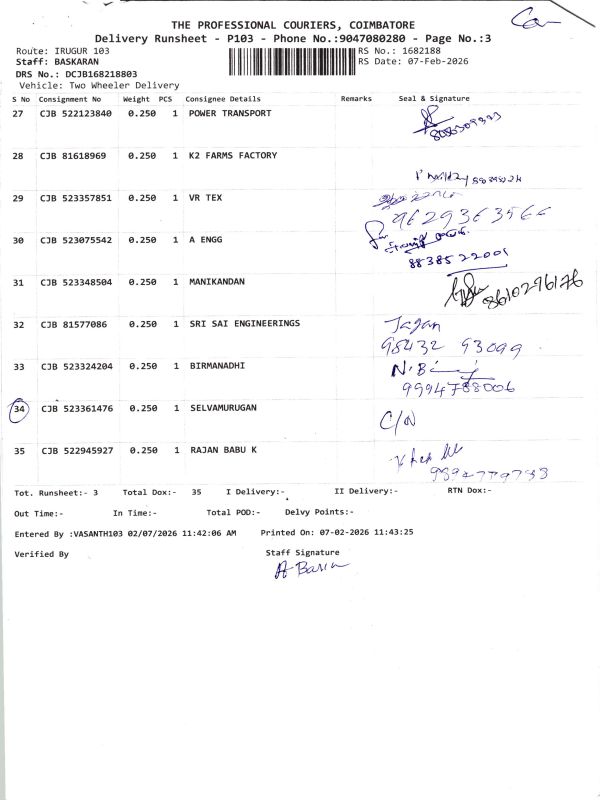 THE PROFESSIONAL COURIERS, COIMBATORE
Delivery Runsheet - P103 - Phone No.:9047080280 - Page No.:3
Route: IRUGUR 103
RS No.: 1682188
Staff: BASKARAN
RS Date: 07-Feb-2026
DRS No.: DCJB168218803
Vehicle: Two Wheeler Delivery
S No Consignment No Weight PCS Consignee Details Remarks Seal & Signature
27 CJB 522123840 0.250 1 POWER TRANSPORT
28 CJB 81618969 0.250 1 K2 FARMS FACTORY
29 CJB 523357851 0.250 1 VR TEX
9629363566
30 CJB 523075542 0.250 1 A ENGG
8838522001
31 CJB 523348504 0.250 1 MANIKANDAN 8610296176
32 CJB 81577086 0.250 1 SRI SAI ENGINEERINGS Jagan
98432 93099
33 CJB 523324204 0.250 1 BIRMANADHI
9994788006
34 CJB 523361476 0.250 1 SELVAMURUGAN C/N
35 CJB 522945927 0.250 1 RAJAN BABU K
Tot. Runsheet:- 3 Total Dox:- 35 I Delivery:- II Delivery:- RTN Dox:-
Out Time:- In Time:- Total POD:- Delvy Points:-
Entered By :VASANTH103 02/07/2026 11:42:06 AM Printed On: 07-02-2026 11:43:25
Verified By Staff Signature